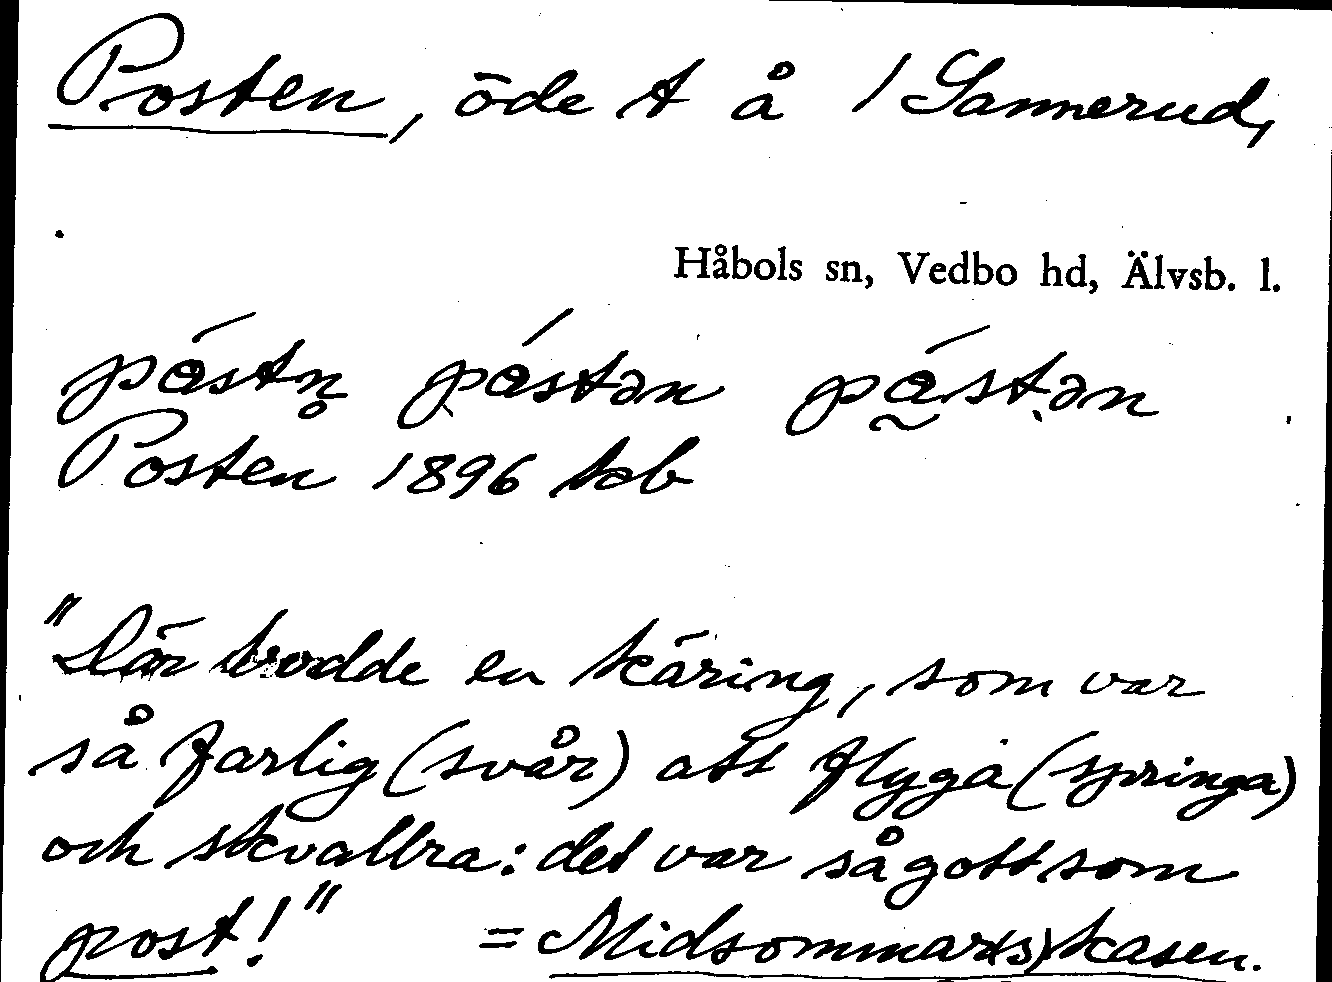 Posten, öde t å 1 Sannerud,
Håbols sn, Vedbo hd, Älvsb. l.
påstn̥ påstən på̰stən
Posten 1896 kb
"Där bodde en käring, som var
så farlig (svår) att flyga (springa)
och skvallra: det var så gott som
post!" = Midsommar(s)kasen.